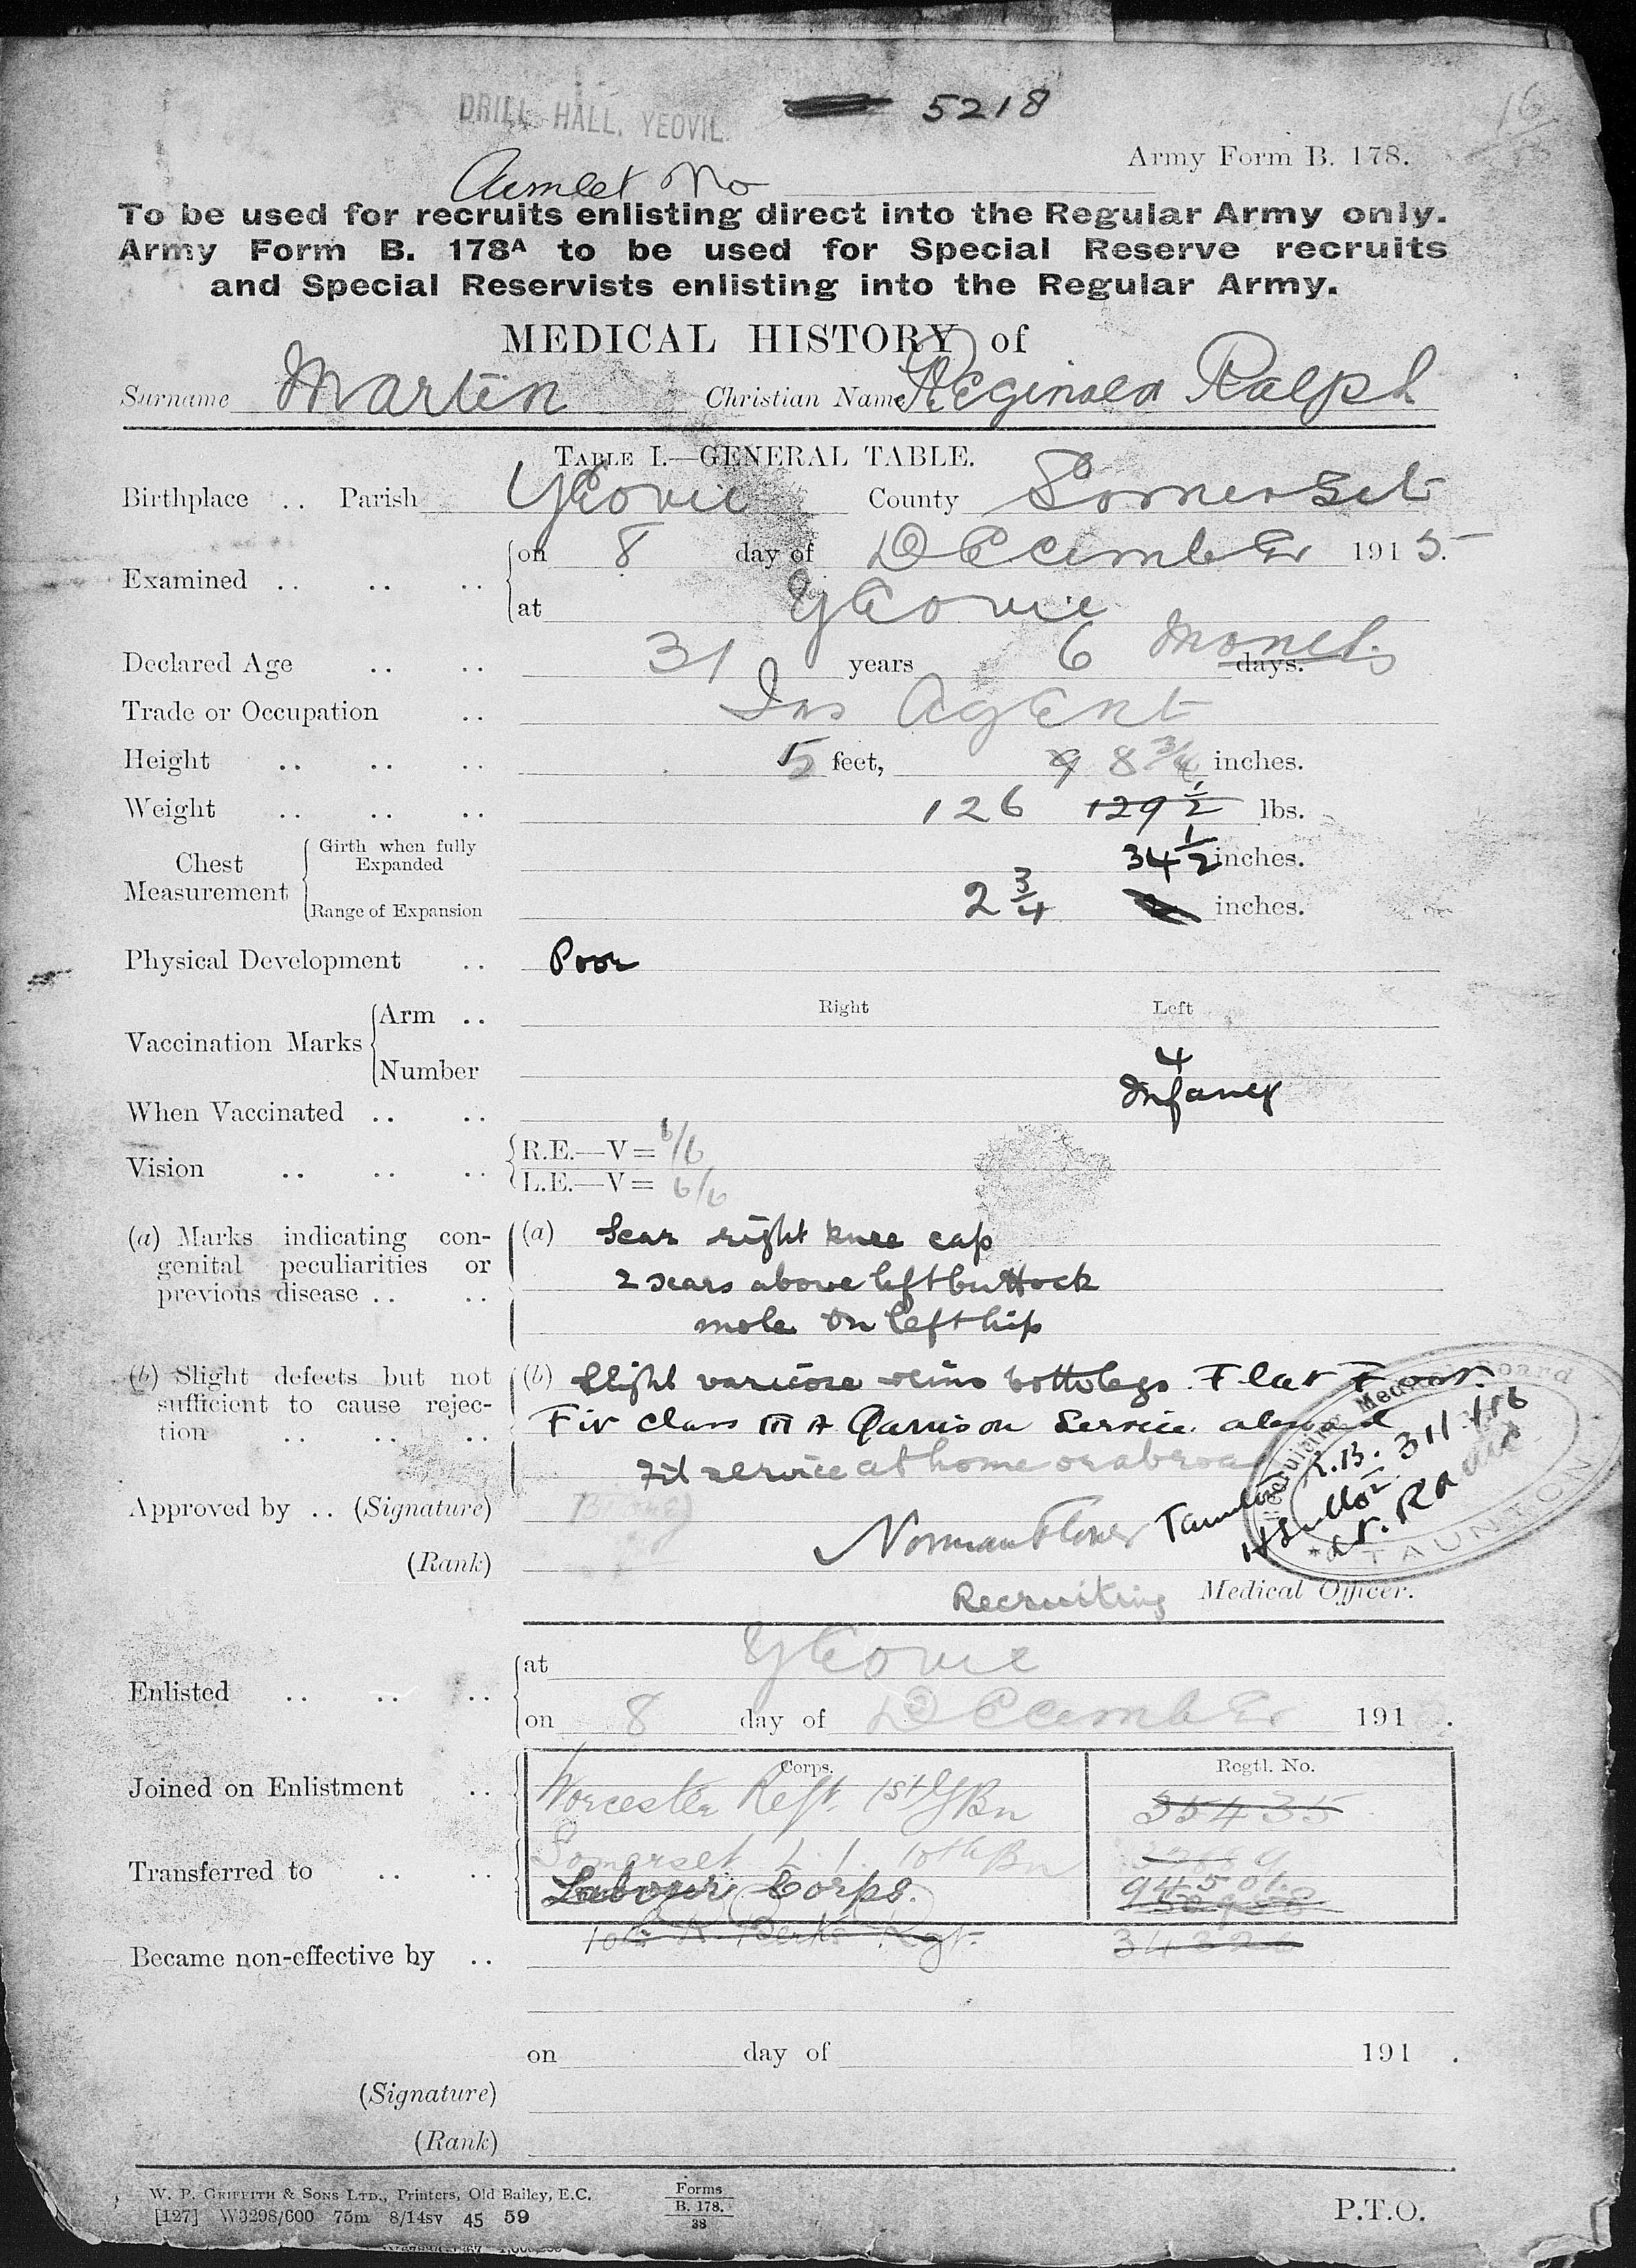 DRILL HALL, YEOVIL.
5218
16
Army Form B. 178.
Armlet No
To be used for recruits enlisting direct into the Regular Army only.
Army Form B. 178A to be used for Special Reserve recruits
and Special Reservists enlisting into the Regular Army.
MEDICAL HISTORY of
Surname Martin Christian Name Reginald Ralph
TABLE I.—GENERAL TABLE.
Birthplace .. Parish Yeovil County Somerset
Examined .. .. .. on 8 day of December 1915.
at Yeovil
Declared Age .. .. 31 years 6 Months days.
Trade or Occupation .. Ins Agent
Height .. .. .. 5 feet, 9 8 3/4 inches.
Weight .. .. .. 126 129 1/2 lbs.
Chest Measurement Girth when fully Expanded 34 1/2 inches.
Range of Expansion 2 3/4 inches.
Physical Development .. Poor
Right Left
Vaccination Marks Arm ..
Number 4
When Vaccinated .. .. Infancy
Vision .. .. .. R.E.—V= 6/6
L.E.—V= 6/6
(a) Marks indicating con-
genital peculiarities or
previous disease .. ..
(a) Scar right knee cap
2 scars above left buttock
mole on left hip
(b) Slight defects but not
sufficient to cause rejec-
tion .. .. ..
(b) Slight varicose veins both legs. Flat Feet.
Fit Class III A Garrison Service abroad
Fit service at home or abroad
Recruiting Medical Board
TAUNTON
Approved by .. (Signature) Norman Flower Taunton
(Rank)
Recruiting Medical Officer.
Enlisted .. .. .. at Yeovil
on 8 day of December 191 .
Corps. Regtl. No.
Joined on Enlistment .. Worcester Regt. 1st G Bn 35435
Transferred to .. .. Somerset L. I. 10th Bn
Labour Corps. 94501.
10th R. Berks Regt.
Became non-effective by ..
on day of 191 .
(Signature)
(Rank)
W. P. GRIFFITH & SONS LTD., Printers, Old Bailey, E.C.
[127] W3298/600 75m 8/14sv 45 59
Forms
B. 178.
38
P.T.O.